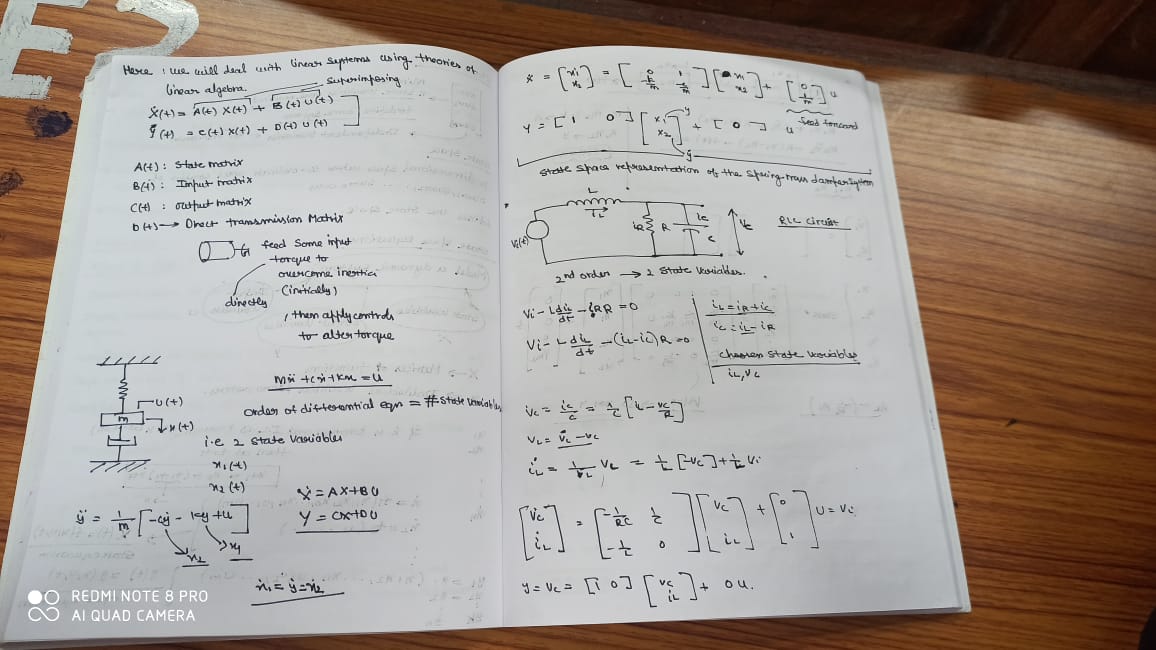 Here : we will deal with linear systems using theories of
linear algebra.
Superimposing
Ẋ(t) = A(t) X(t) + B(t) U(t)
Ẏ(t) = C(t) X(t) + D(t) U(t)
A(t) : State matrix
B(t) : Input matrix
C(t) : output matrix
D(t) → Direct transmission Matrix
feed some input
torque to
overcome inertia
(initially)
directly
, then apply controls
to alter torque
Mẍ + cẋ + kx = U
Order of differential eqn = # state variables
i.e 2 state variables
U(t)
m
x(t)
x1(t)
x2(t)
Ẋ = AX+BU
Y = CX+DU
ÿ = 1/m [-cẏ - ky + u]
x2
x1
ẋ1 = ẏ = x2
REDMI NOTE 8 PRO
AI QUAD CAMERA
u
feed forward
Y = [1 0] [x1 x2] + [0] u
y
ẏ
State space representation of the spring-mass damper system
L
iL
Vi(t)
iR
R
ic
c
Vc
RLC circuit
2nd order → 2 state variables.
Vi - L diL/dt - iR R = 0
iL = iR + ic
ic = iL - iR
Vi - L diL/dt - (iL - ic) R = 0
chosen state variables
iL, Vc
V̇c = ic/c = 1/c [iL - Vc/R]
VL = Vi - Vc
i̇L = 1/L VL = 1/L [-Vc] + 1/L Vi
[V̇c i̇L] = [-1/RC 1/c -1/L 0] [Vc iL] + [0 1] U = Vi
y = Vc = [1 0] [Vc iL] + 0 U.